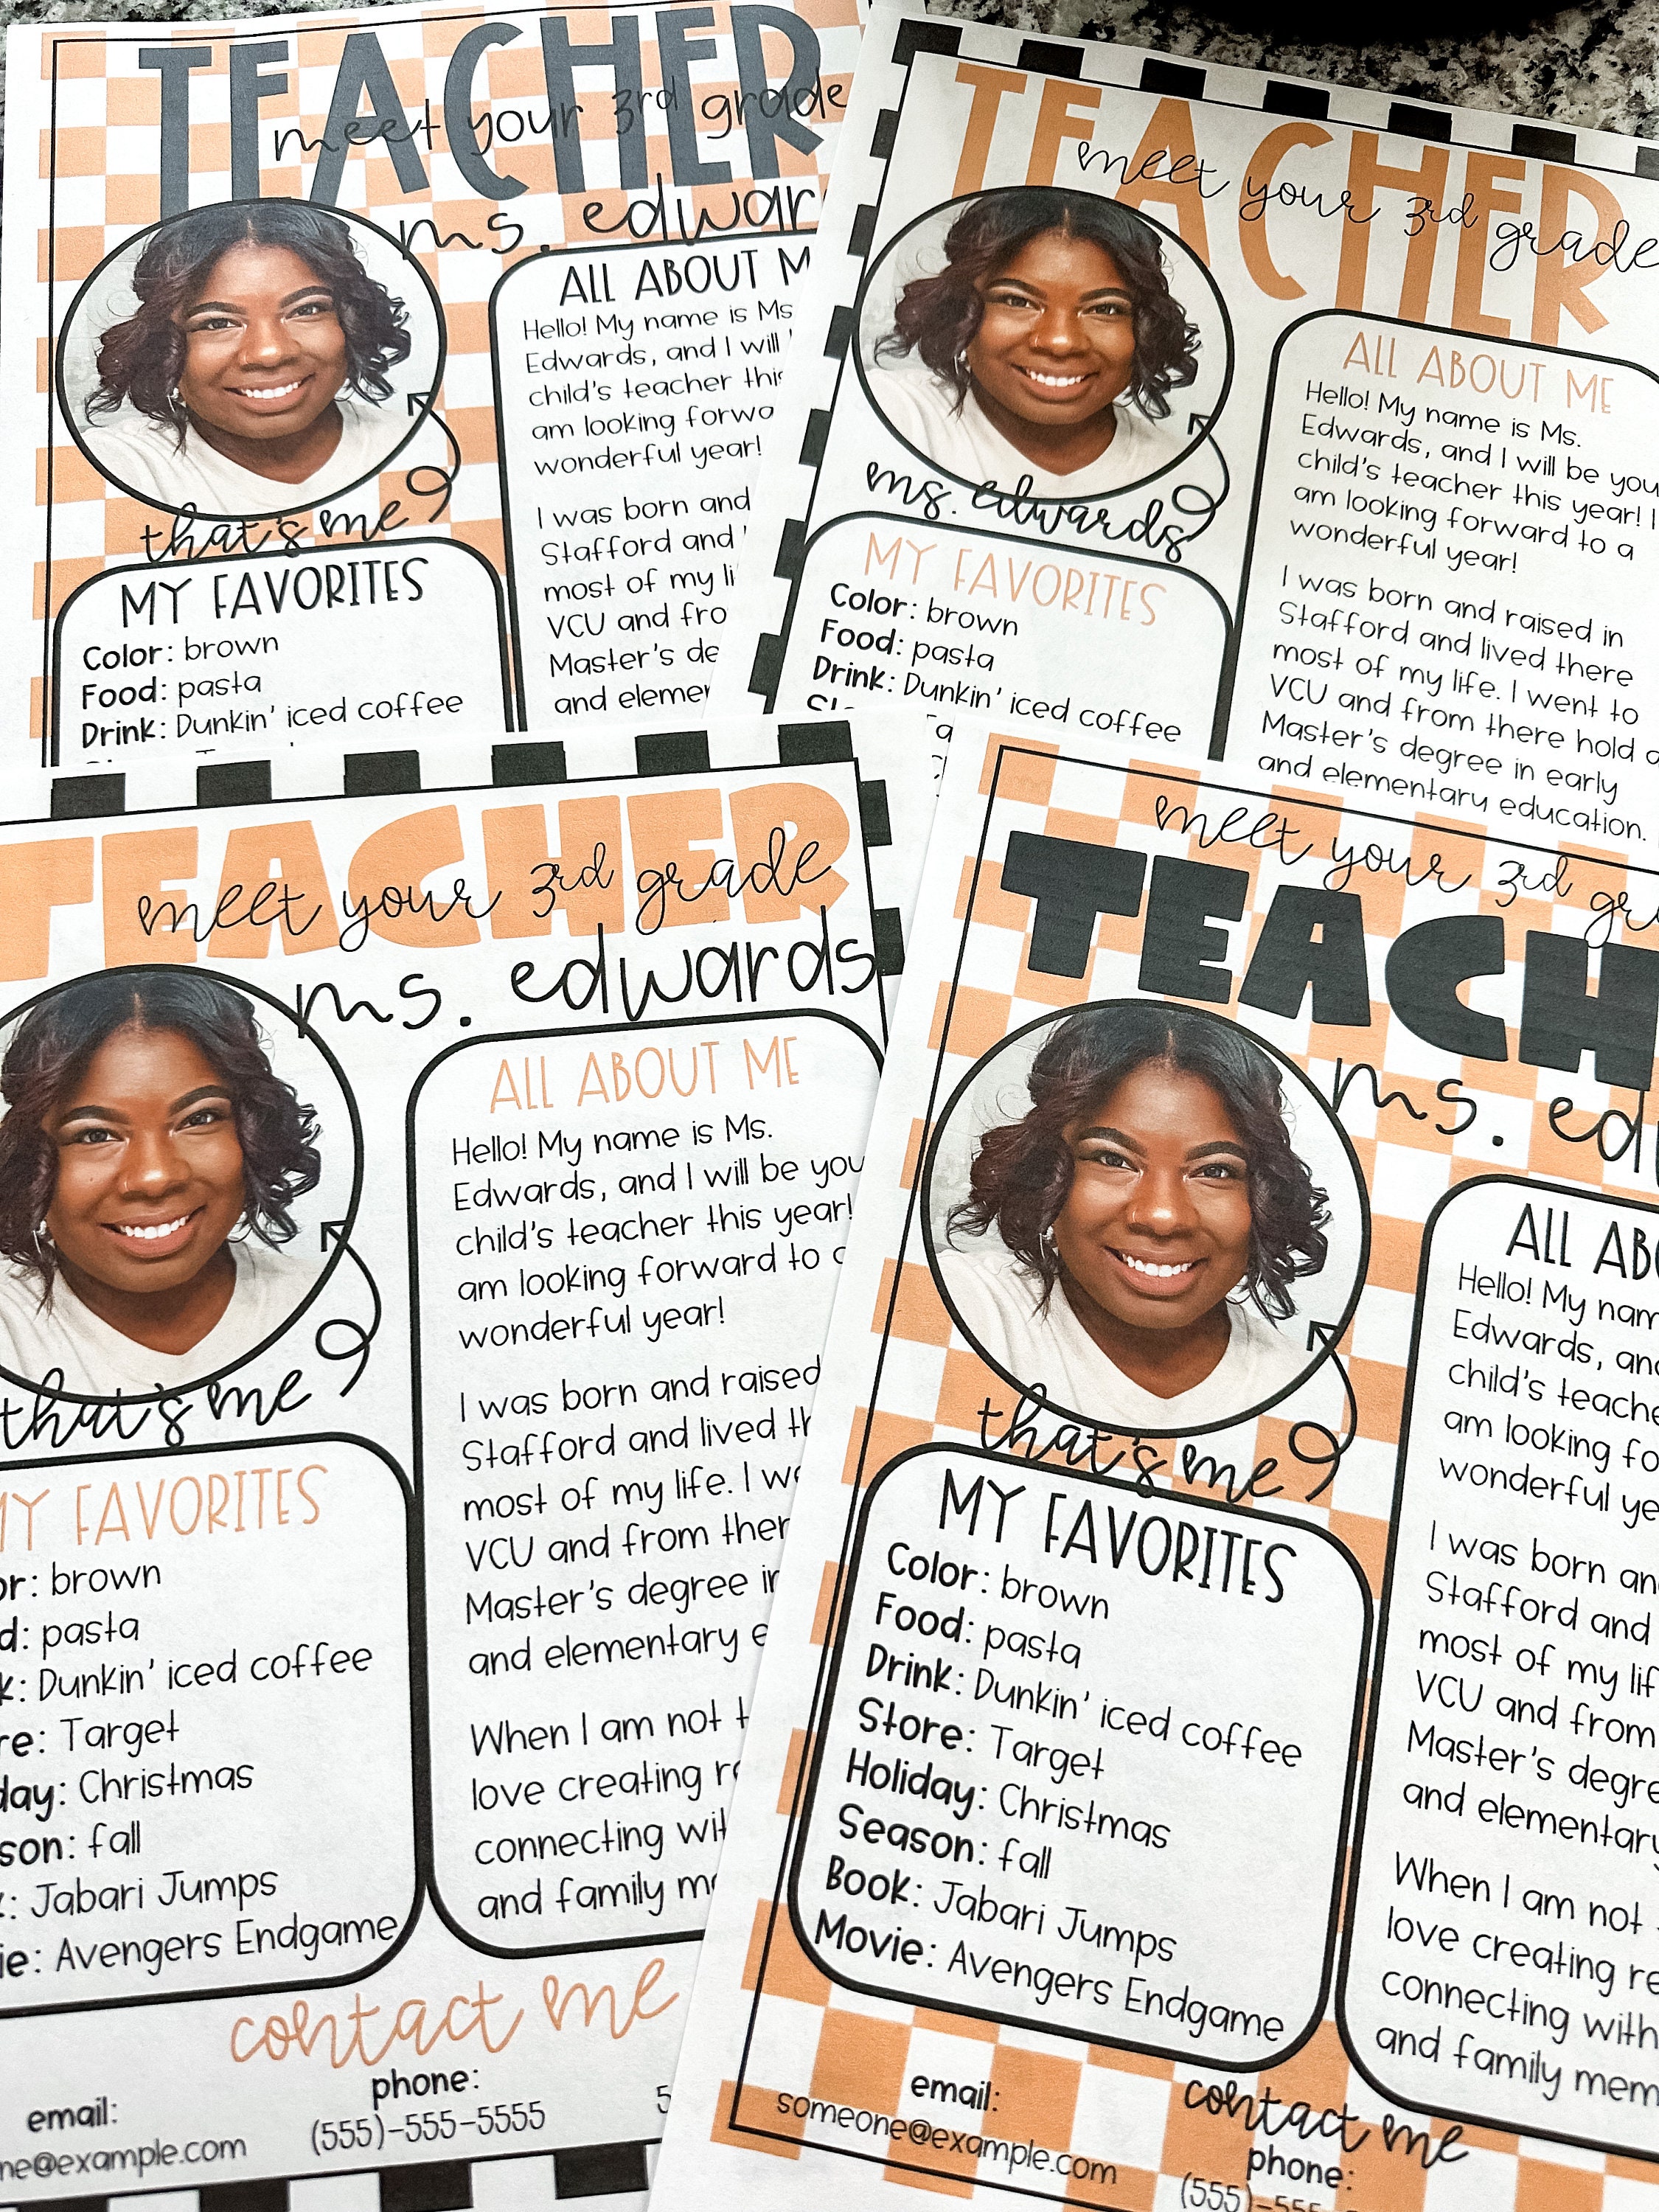 TEACHER
meet your 3rd grade
ms.
that's me
MY FAVORITES
Color: brown
Food: pasta
Drink: Dunkin' iced coffee
ALL ABOUT
Hello! My name is Ms
Edwards, and I will
child's teacher
am looking
wonderful year!
I was born and
Stafford and
most of my
VCU and
Master's
and
TEACHER
meet your 3rd grade
ms. edwards
MY FAVORITES
Color: brown
Food: pasta
Drink: Dunkin' iced coffee
ALL ABOUT ME
Hello! My name is Ms.
Edwards, and I will be
child's teacher this year! I
am looking forward to a
wonderful year!
I was born and raised in
Stafford and lived there
most of my life. I went to
VCU and from there hold a
Master's degree in early
and elementary education.
TEACHER
meet your 3rd grade
ms. edwards
that's me
MY FAVORITES
brown
pasta
Dunkin' iced coffee
Target
Christmas
fall
Jabari Jumps
Avengers Endgame
ALL ABOUT ME
Hello! My name is Ms.
Edwards, and I will be
child's teacher this year!
am looking forward to
wonderful year!
I was born and raised
Stafford and lived
most of my life. I
VCU and from
Master's degree
and elementary
When I am not
love creating
connecting
and family
contact me
email:
phone:
(555)-555-5555
meet your 3rd
ms.
that's me
MY FAVORITES
Color: brown
Food: pasta
Drink: Dunkin' iced coffee
Store: Target
Holiday: Christmas
Season: fall
Book: Jabari Jumps
Movie: Avengers Endgame
ALL
Hello! My
Edwards,
child's
am looking
wonderful
I was born
Stafford and
most of my
VCU and from
Master's
and
When I am not
love creating
connecting with
and family
contact me
email:
someone@example.com
phone: